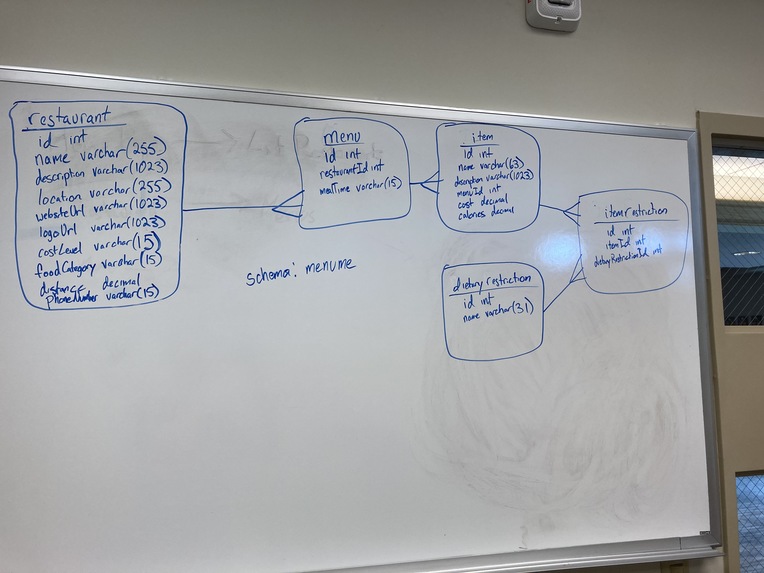 restaurant
id int
name varchar(255)
description varchar(1023)
location varchar(255)
websiteUrl varchar(1023)
logoUrl varchar(1023)
costLevel varchar(15)
foodCategory varchar(15)
distance decimal
phoneNumber varchar(15)
menu
id int
restaurantId int
mealTime varchar(15)
item
id int
name varchar(63)
description varchar(1023)
menuId int
cost decimal
calories decimal
itemrestriction
id int
itemId int
dietaryRestrictionId int
dietaryrestriction
id int
name varchar(31)
schema: menume